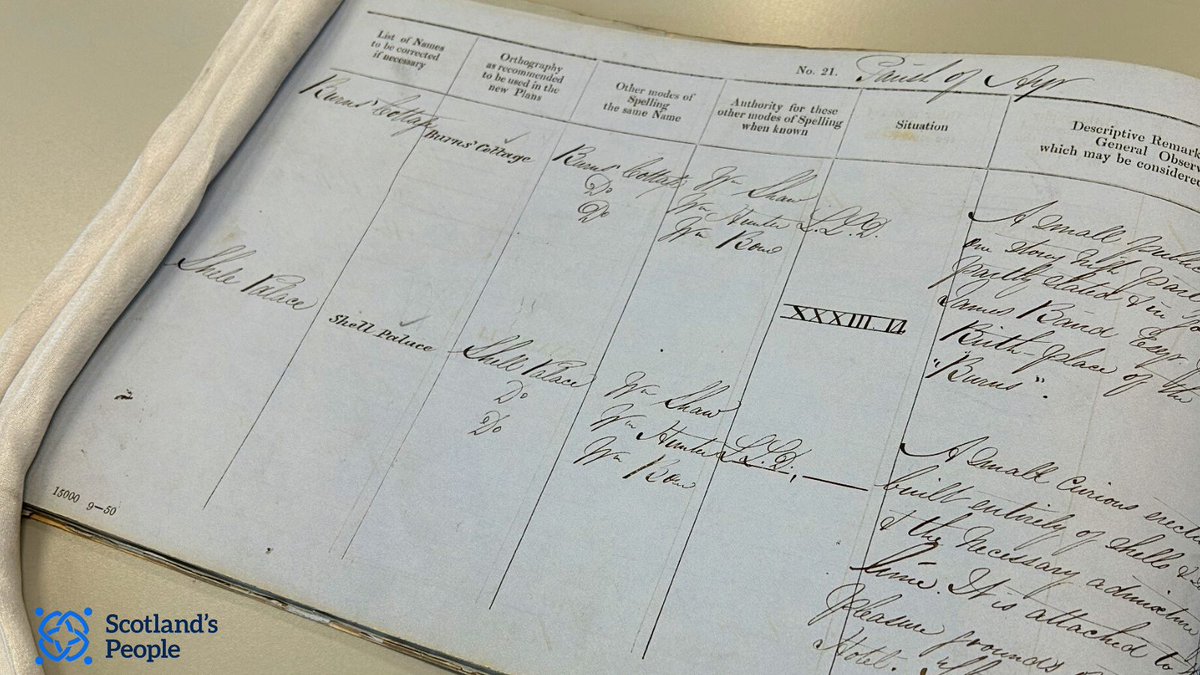 No. 21. Parish of Ayr
List of Names
to be corrected
if necessary
Orthography
as recommended
to be used in the
new Plans
Other modes of
Spelling
the same Name
Authority for these
other modes of Spelling
when known
Situation
Descriptive Remark
General Observ
which may be considered
Burns' Cottage
Burns' Cottage
Burns' Cottage
Do
Do
Wm Shaw
Wm Hunter L.L.D.
Wm Bone
XXXIII 14
A Small public
one Story high part
partly slated & in
James Baird Esqr
Birth-place of the
"Burns".
Shell Palace
Shell Palace
Shell Palace
Do
Do
Wm Shaw
Wm Hunter L.L.D.,
Wm Bone
A Small Curious erect
built entirely of Shells &
& the necessary admixture
lime. It is attached to
pleasure grounds
Hotel.
15000 9—50
Scotland's
People